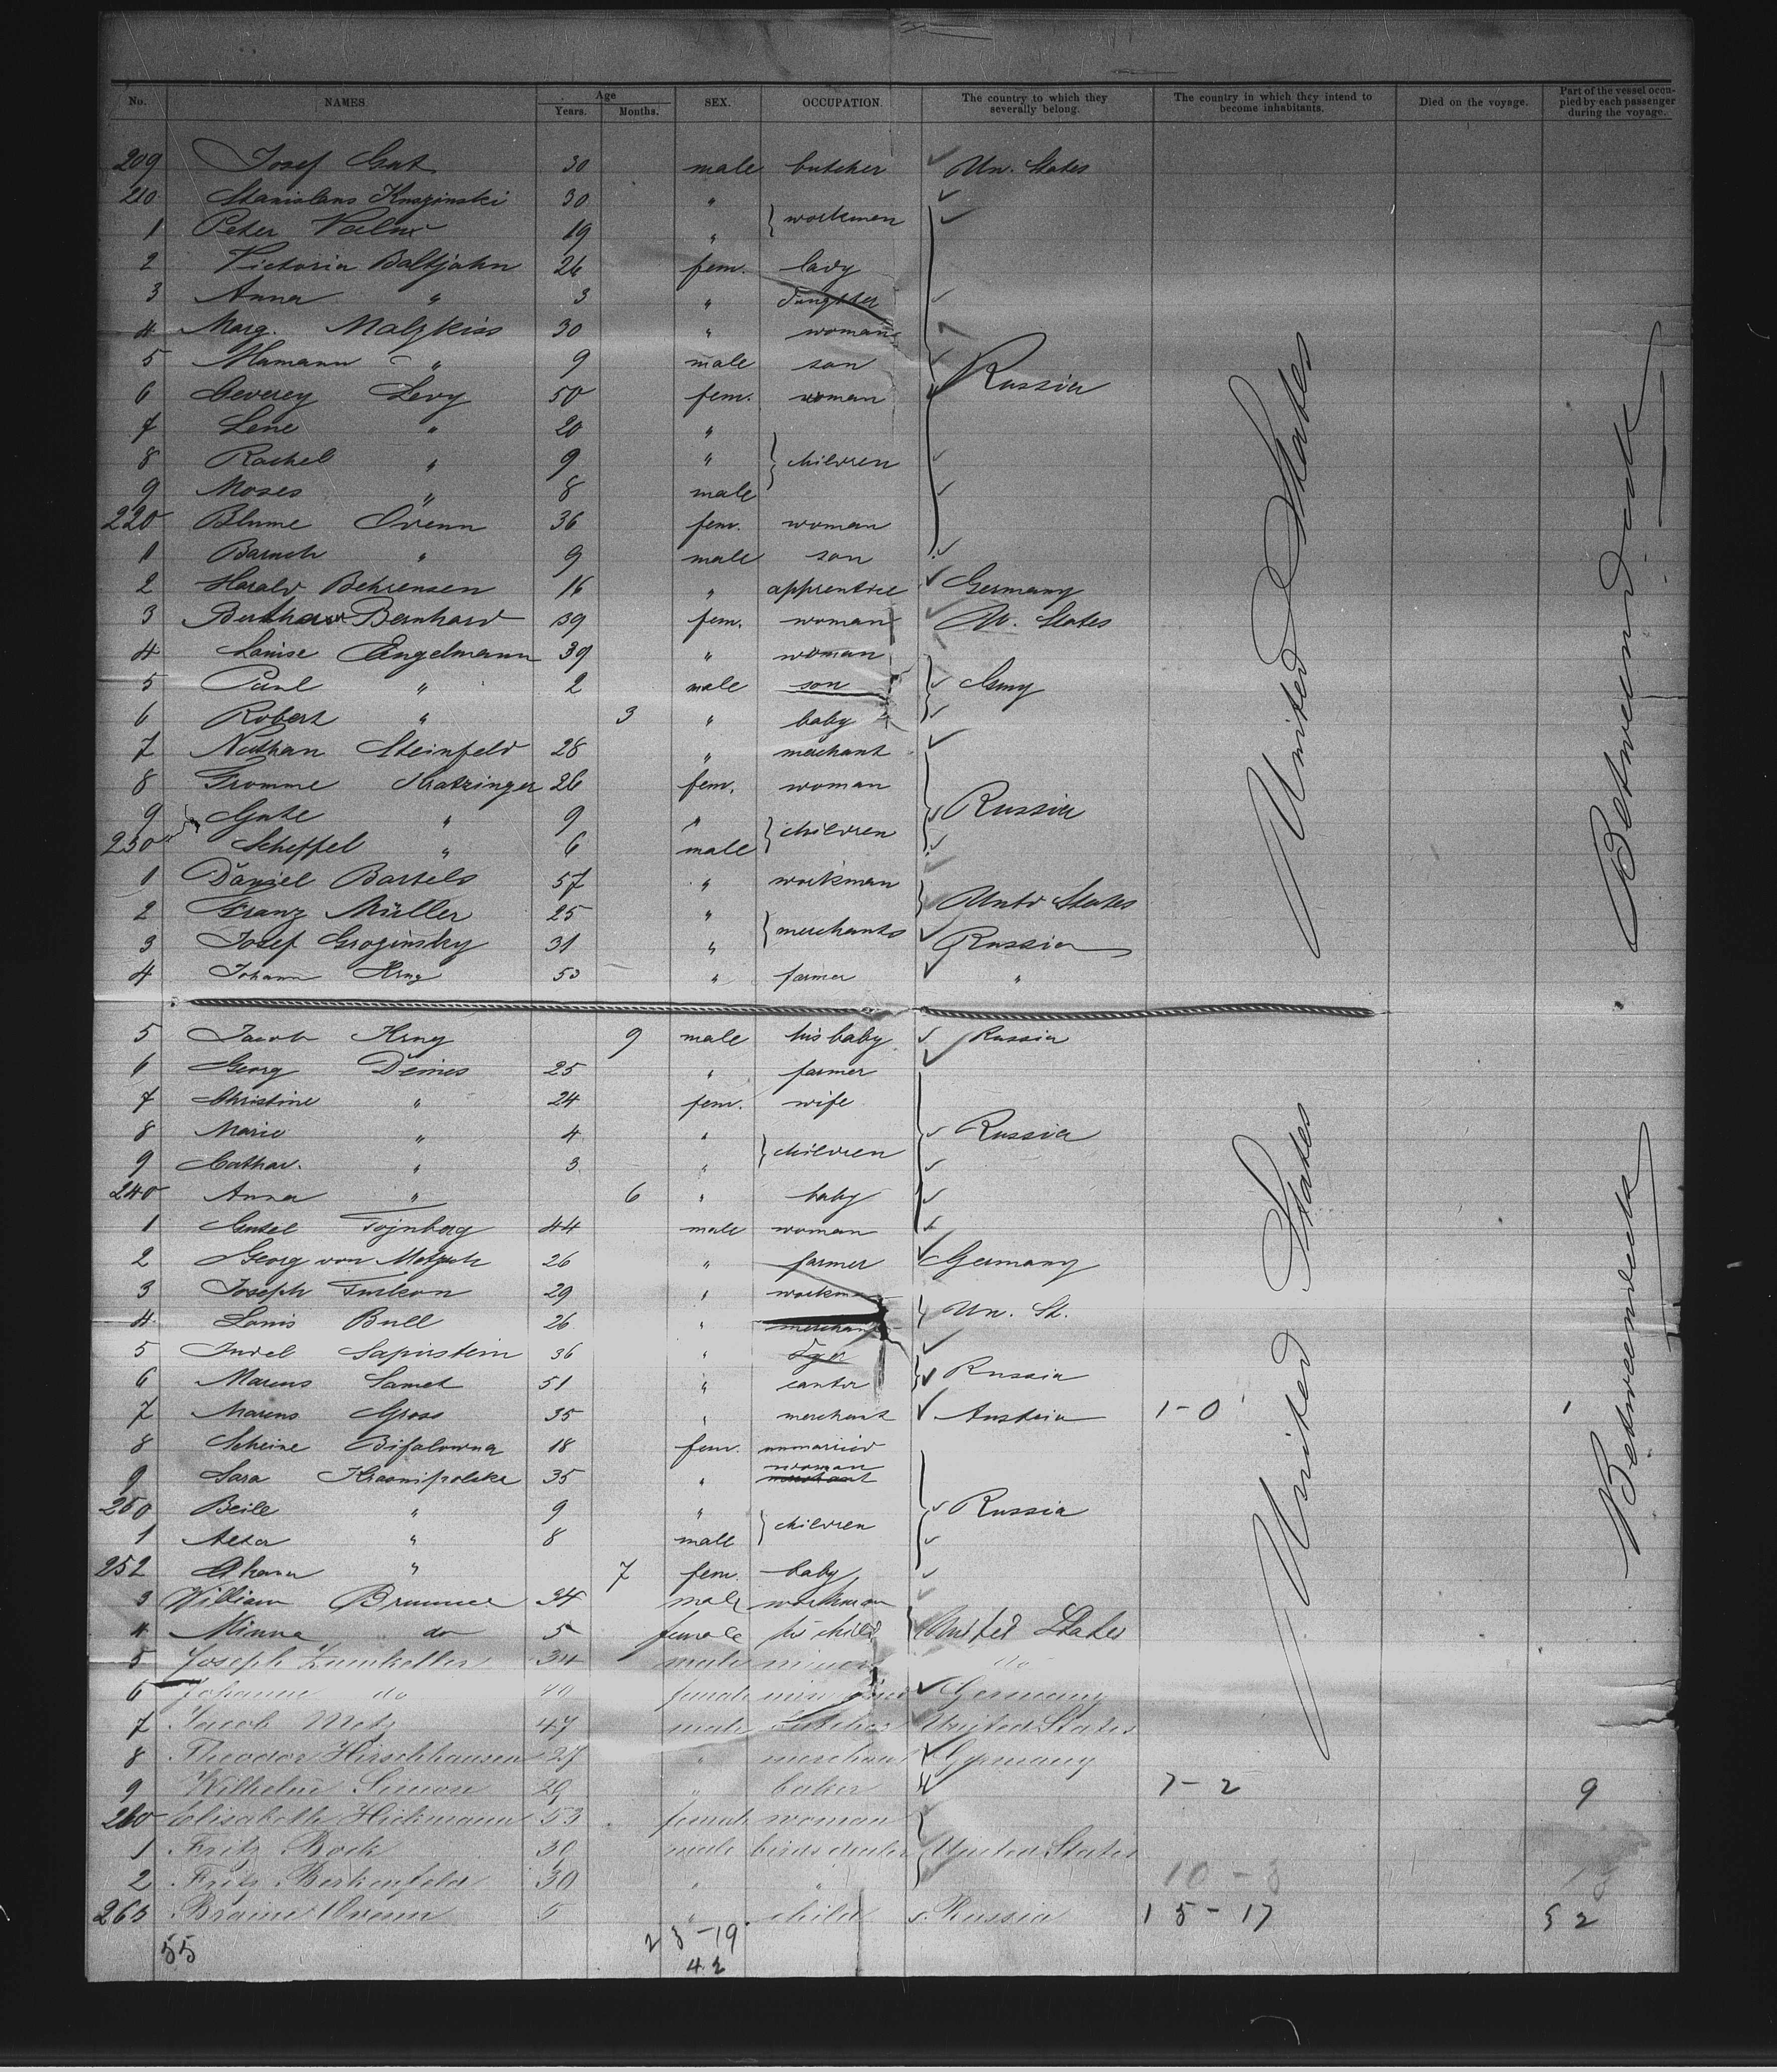 No. NAMES. Age Years. Months. SEX. OCCUPATION. The country to which they severally belong. The country in which they intend to become inhabitants. Died on the voyage. Part of the vessel occupied by each passenger during the voyage.
209 Josef 30 male butcher Un. States
210 Stanislaus 30 "
1 Peter 19 " } workmen
2 Victoria Baltjahn 26 fem. lady
3 Anna " 3 " daughter
4 Marg. Malzkiss 30 " woman
5 " 9 male son
6 Levy 50 fem. woman Russia
7 Lene " 20 "
8 Rachel " 9 " } children
9 Moses " 8 male
220 Blume 36 fem. woman
1 Baruch " 9 male son
2 Harald Behrensen 16 " apprentice Germany
3 Bernhard 39 fem. woman Un. States
4 Louise Engelmann 39 " woman
5 Paul " 2 male son Gmy
6 Robert " 3 " baby
7 Nathan Steinfeld 28 " merchant
8 Fromme Kratzinger 26 fem. woman
9 Gute " 9 " } children Russia
230 Scheffel " 6 male
1 Daniel Bartels 57 " workman
2 Franz Müller 25 " Untd States
3 Josef Groginsky 31 " } merchants Russia
4 Johann 53 " farmer "
5 Jacob 9 male his baby Russia
6 Georg Deines 25 " farmer
7 Christine " 24 fem. wife
8 Marie " 4 " Russia
9 Cathar. " 3 " } children
240 Anna " 6 " baby
1 Tojnberg 44 male woman
2 Georg von 26 " farmer Germany
3 Joseph 29 " workman
4 Louis Bull 26 " merchant Un. St.
5 Judel Sapirstein 36 "
6 Marcus Samet 51 " cantor Russia
7 Marcus Gross 35 " merchant Austria 1-0 1
8 Scheine Bifalowna 18 fem. unmarried
9 Sara Krasnipolska 35 " woman merchant
250 Beile " 9 " Russia
1 Alta " 8 male } children
252 Chana " 7 fem. baby
3 William 34 male workman
4 Minna do 5 female his child United States
5 Joseph Zumkeller 34 male do
6 Johanne do 40 female Germany
7 Jacob Metz 47 male butcher United States
8 Theodor Hirschhausen 27 " merchant Germany
9 Wilhelm Simon 29 " baker 7-2 9
260 Elisabeth Hickmann 53 female woman
1 Fritz Bock 30 male birds dealer United States
2 Fritz Berkenfeld 30 " " 10-3 13
263 6 " child Russia 15-17 32
55 23-19
42
United States
Betweendeck
United States
Betweendeck